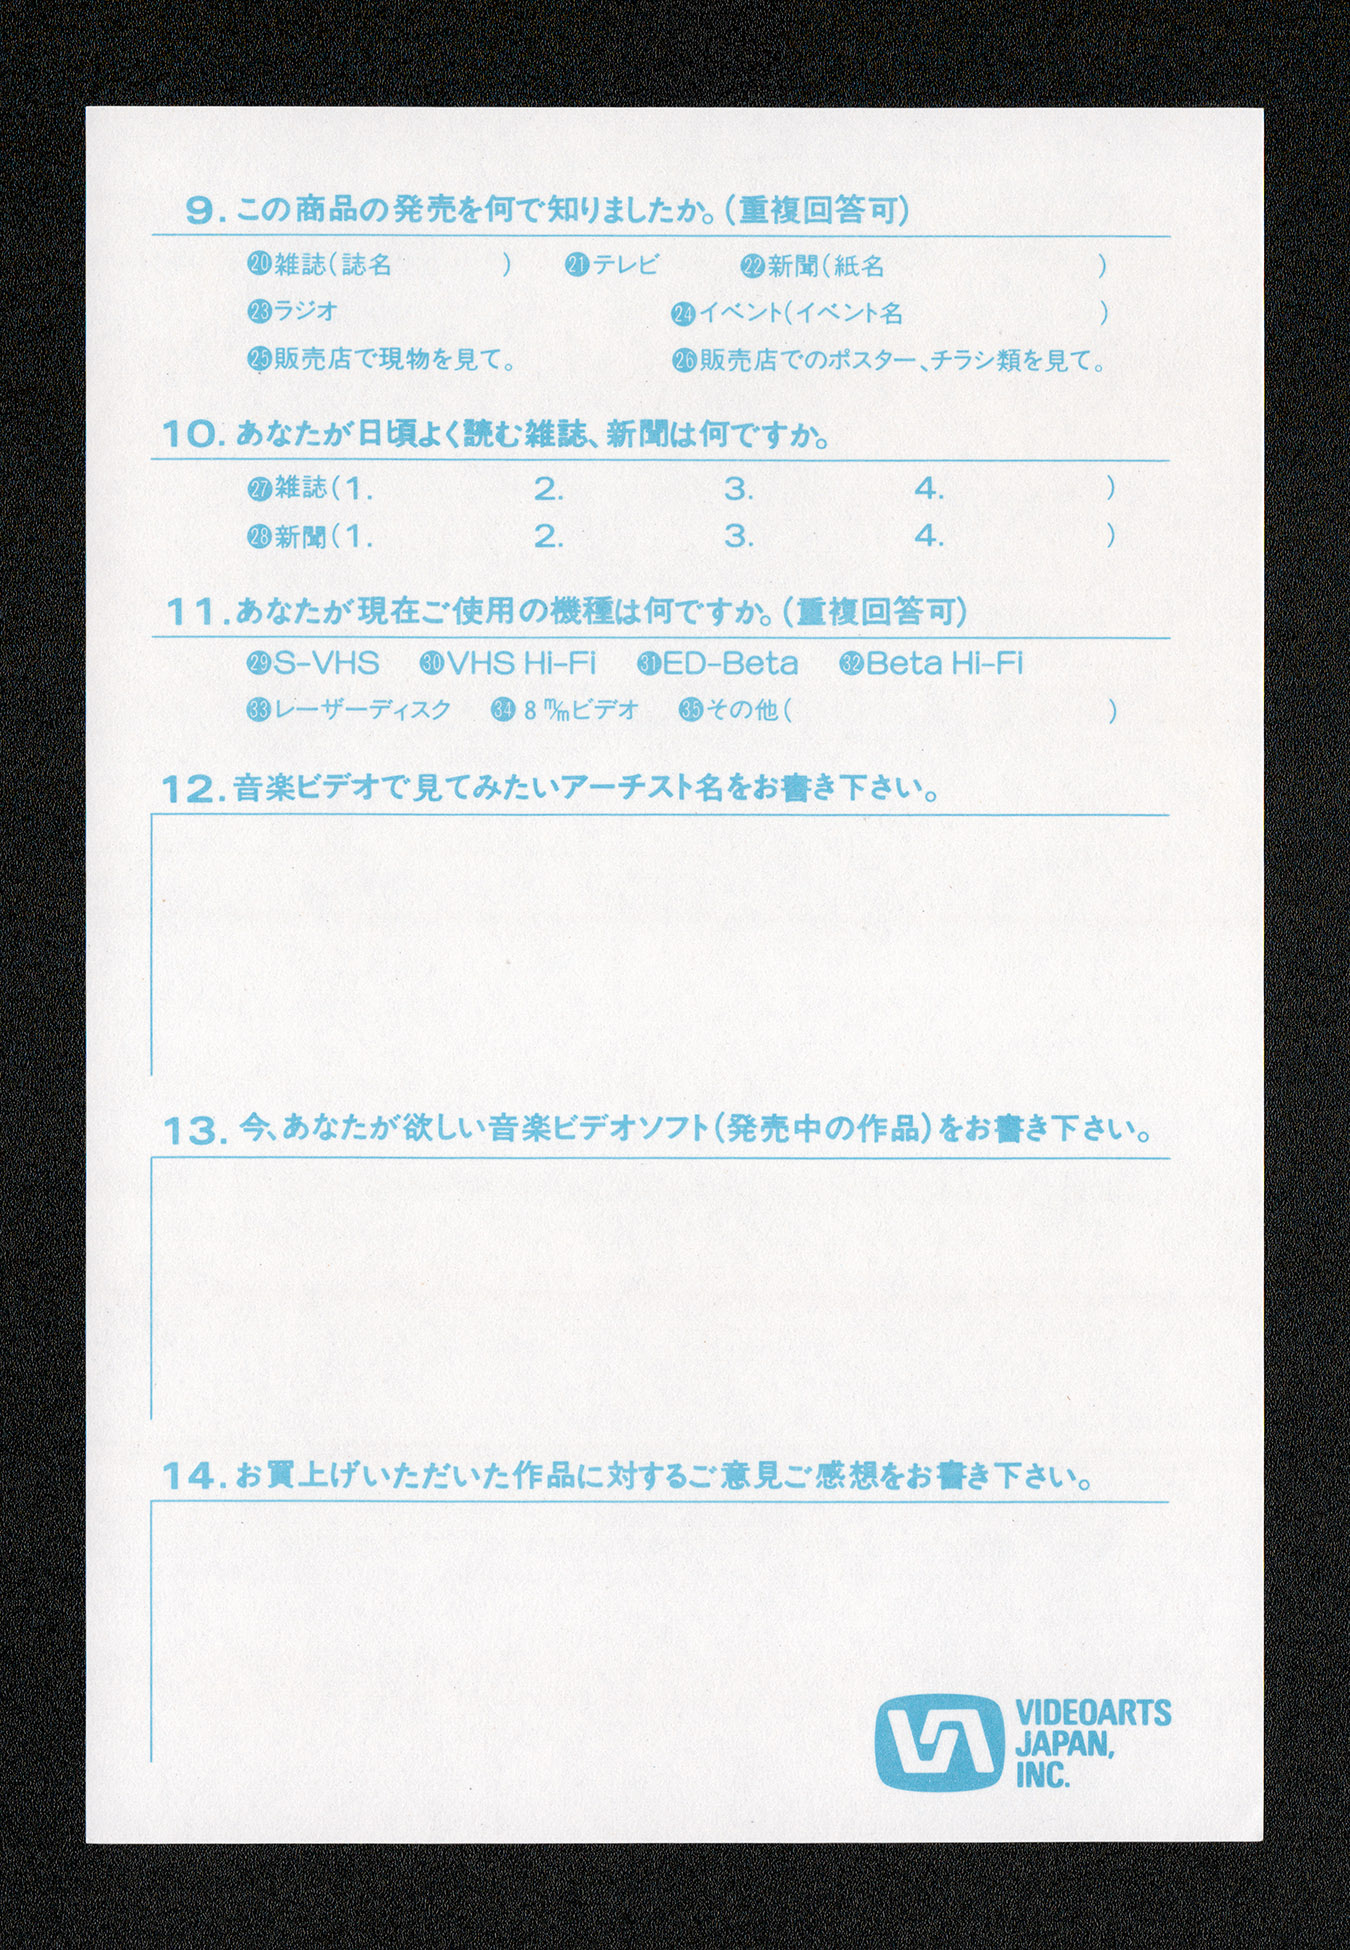 9.この商品の発売を何で知りましたか。(重複回答可)
⑳雑誌(誌名 ) ㉑テレビ ㉒新聞(紙名 )
㉓ラジオ ㉔イベント(イベント名 )
㉕販売店で現物を見て。 ㉖販売店でのポスター、チラシ類を見て。
10.あなたが日頃よく読む雑誌、新聞は何ですか。
㉗雑誌(1. 2. 3. 4. )
㉘新聞(1. 2. 3. 4. )
11.あなたが現在ご使用の機種は何ですか。(重複回答可)
㉙S-VHS ㉚VHS Hi-Fi ㉛ED-Beta ㉜Beta Hi-Fi
㉝レーザーディスク ㉞8m/mビデオ ㉟その他( )
12.音楽ビデオで見てみたいアーチスト名をお書き下さい。
13.今、あなたが欲しい音楽ビデオソフト(発売中の作品)をお書き下さい。
14.お買上げいただいた作品に対するご意見ご感想をお書き下さい。
VIDEOARTS
JAPAN,
INC.